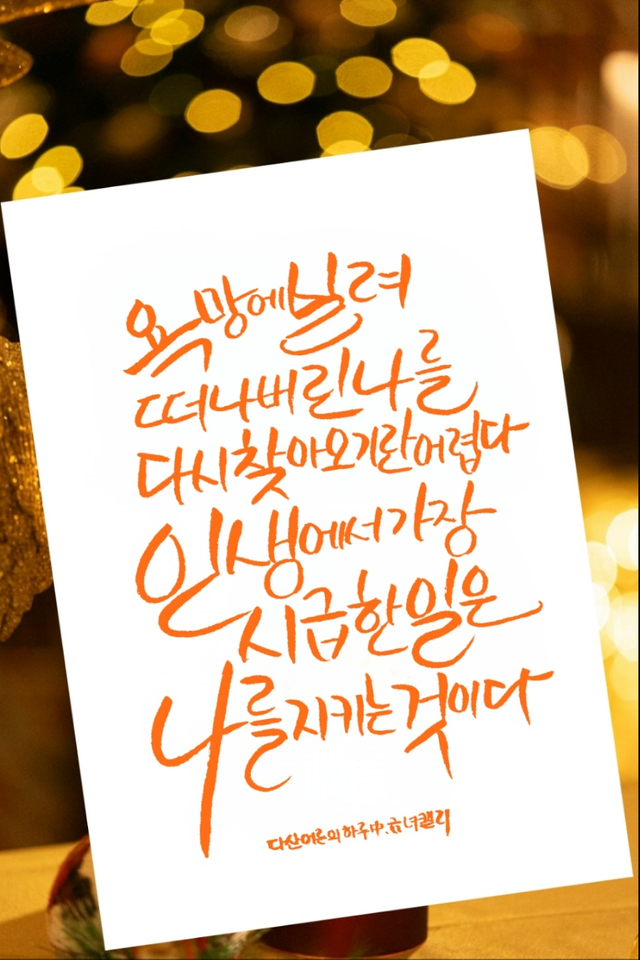 욕망에 실려
떠나버린 나를
다시 찾아오기란 어렵다
인생에서 가장
시급한 일은
나를 지키는 것이다
다산어른의 하루 中,